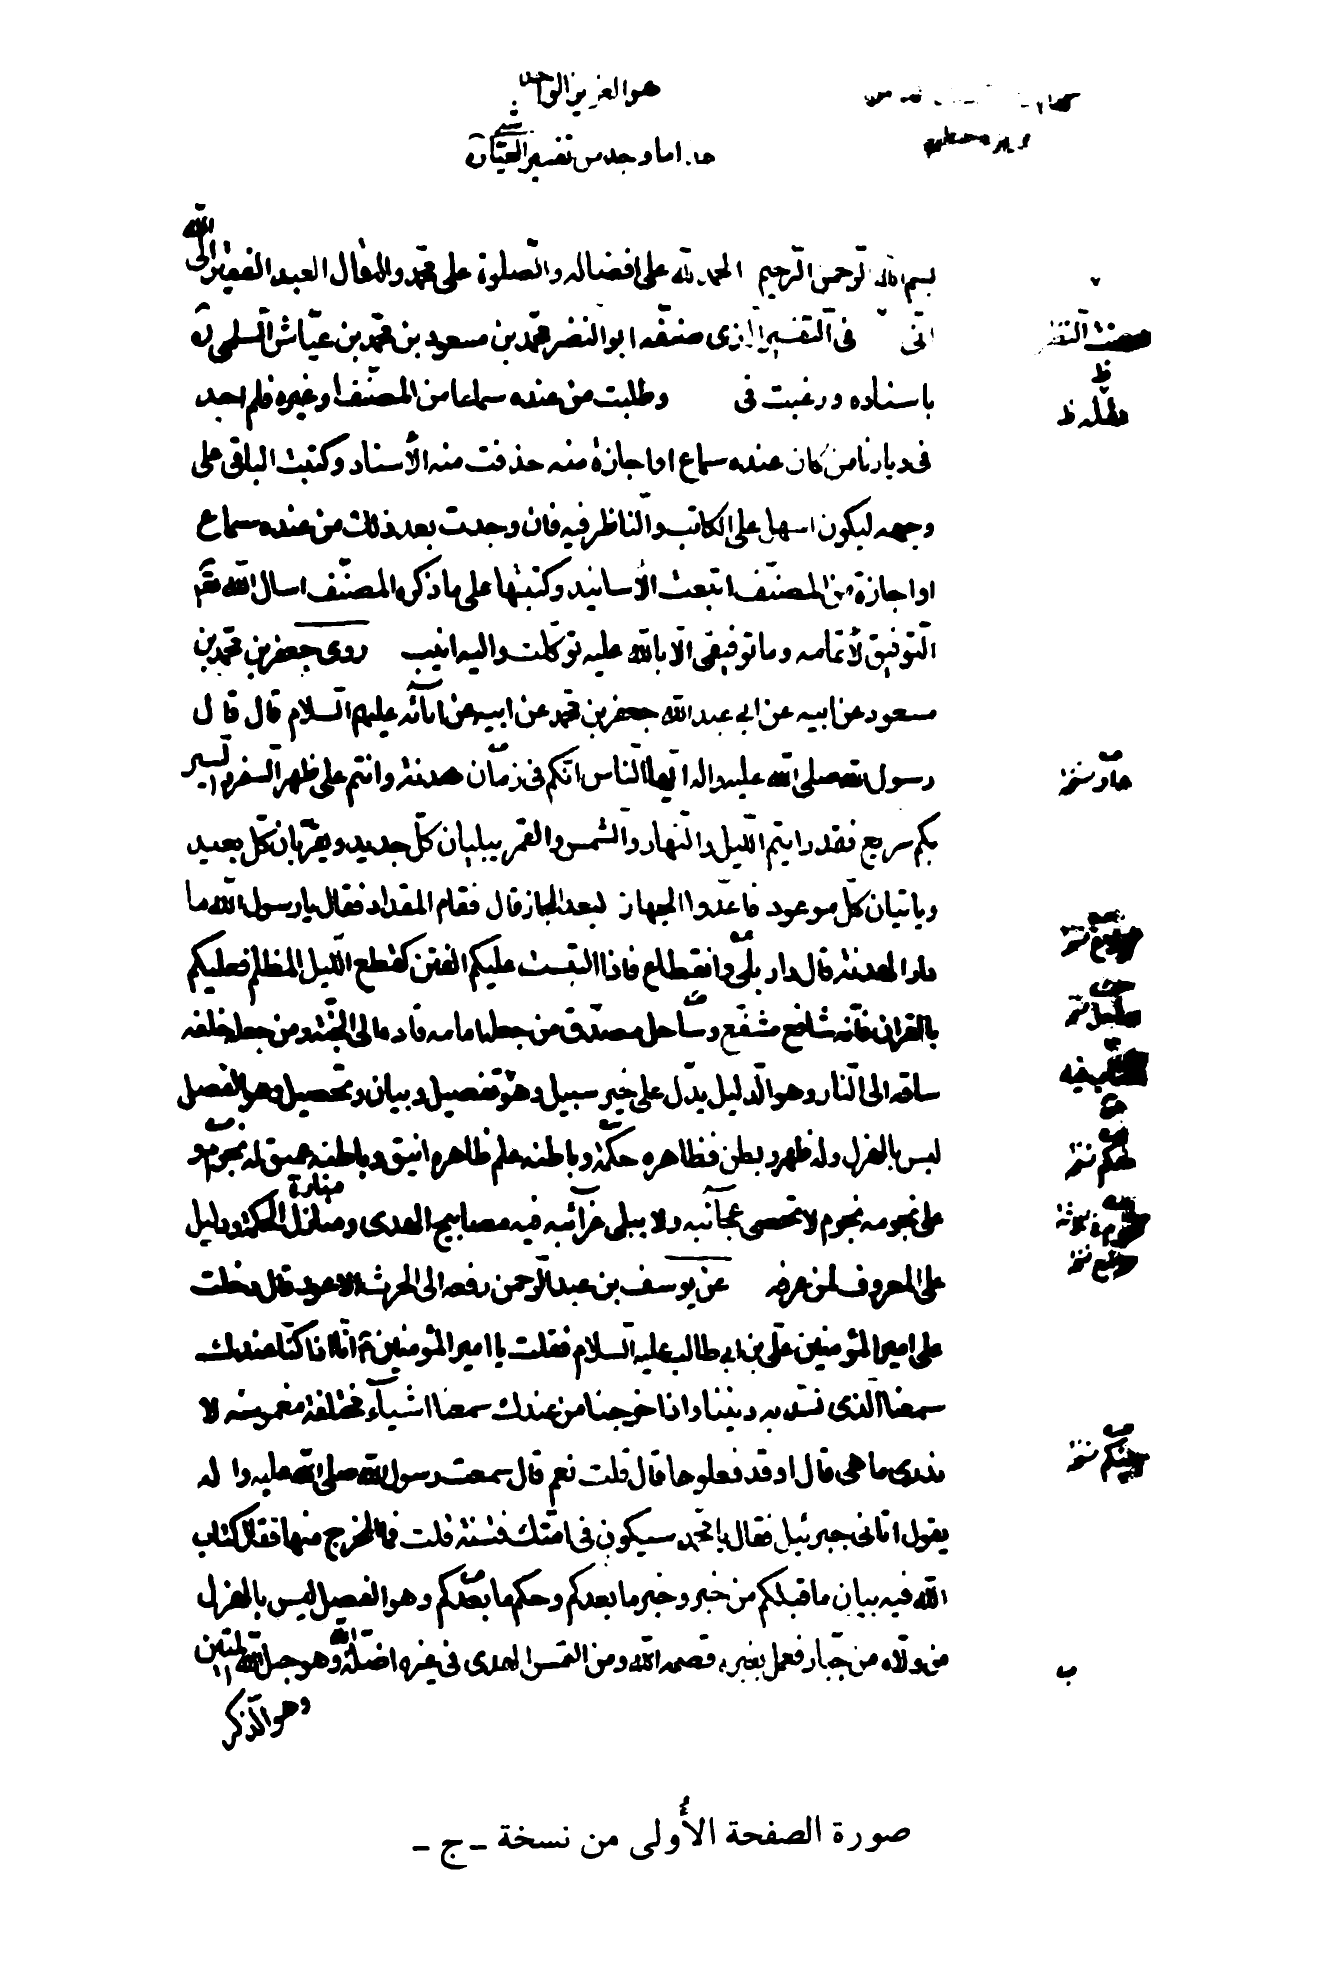 هو العزيز الواحد
هذا ما وجد من تفسير العيّاشي
بسم الله الرحمن الرحيم الحمد لله على افضاله والصلوة على محمّد واله قال العبد الفقير الى الله
انّى في التفسير الذى صنفه ابو النضر محمّد بن مسعود بن محمّد بن عيّاش السلمى
باسناده ورغبت فى وطلبت من عنده سماعا من المصنّف او غيره فلم اجد
فى ديارنا من كان عنده سماع او اجازة منه حذفت منه الأسناد وكتبت الباقى على
وجهه ليكون اسهل على الكاتب والنّاظر فيه فان وجدت بعد ذلك من عنده سماع
او اجازة من المصنّف اتبعت الأسانيد وكتبتها على ما ذكره المصنّف اسال الله تعم
التوفيق لأتمامه وما توفيقى الّا بالله عليه توكّلت واليه انيب روى جعفر بن محمّد بن
مسعود عن ابيه عن ابى عبد الله جعفر بن محمّد عن ابيه عن ابآئه عليهم السّلام قال قال
رسول الله صلى الله عليه واله ايّها النّاس انّكم فى زمان هدنة وانتم على ظهر السّفر والسّير
بكم سريع فقد رايتم اللّيل والنّهار والشّمس والقمر يبليان كلّ جديد ويقرّبان كلّ بعيد
وياتيان كلّ موعود فاعدّوا الجهاز لبعد المجاز قال فقام المقداد فقال يا رسول الله ما
دار الهدنة قال دار بلى وانقطاع فاذا التبست عليكم الفتن كقطع اللّيل المظلم فعليكم
بالقران فانّه شافع مشفّع وماحل مصدّق من جعله امامه قاده الى الجنّة ومن جعله خلفه
ساقه الى النّار وهو الدّليل يدّل على خير سبيل وهو تفصيل وبيان وتحصيل وهو الفصل
ليس بالهزل وله ظهر وبطن فظاهره حكمة وباطنه علم ظاهره انيق وباطنه عميق له نجوم و
على نجومه نجوم لا تحصى عجآئبه ولا يبلى غرآئبه فيه مصابيح الهدى ومنازل الحكمة ودليل
منارة
على المعروف لمن عرفه عن يوسف بن عبد الرّحمن رفعه الى الحرث الاعور قال دخلت
على امير المؤمنين علّى بن ابى طالب عليه السّلام فقلت يا امير المؤمنين انّا اذا كنّا عندك
سمعنا الّذى نسّد به ديننا واذا خرجنا من عندك سمعنا اشيآء مختلفة مغموسة لا
ندرى ما هى قال او قد فعلوها قال قلت نعم قال سمعت رسول الله صلى الله عليه واله
يقول اتانى جبرئيل فقال يا محمّد سيكون فى امّتك فتنة قلت فما المخرج منها فقال كتاب
الله فيه بيان ما قبلكم من خبر وخبر ما بعدكم وحكم ما بينكم وهو الفصل ليس بالهزل
من ولاّه من جبّار فعمل بغيره قصمه الله ومن التمس الهدى فى غيره اضلّه الله وهو حبل الله المتين
وهو الذّكر
صورة الصفحة الأُولى من نسخة ـ ج ـ